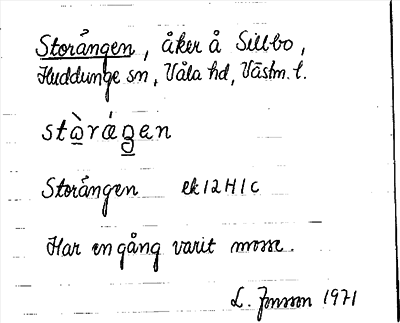 Storången, åker å Sillbo,
Huddunge sn, Våla hd, Västm. l.
stòrágen
Storången ek 12 H 1 c
Har en gång varit mosse.
L. Jonsson 1971